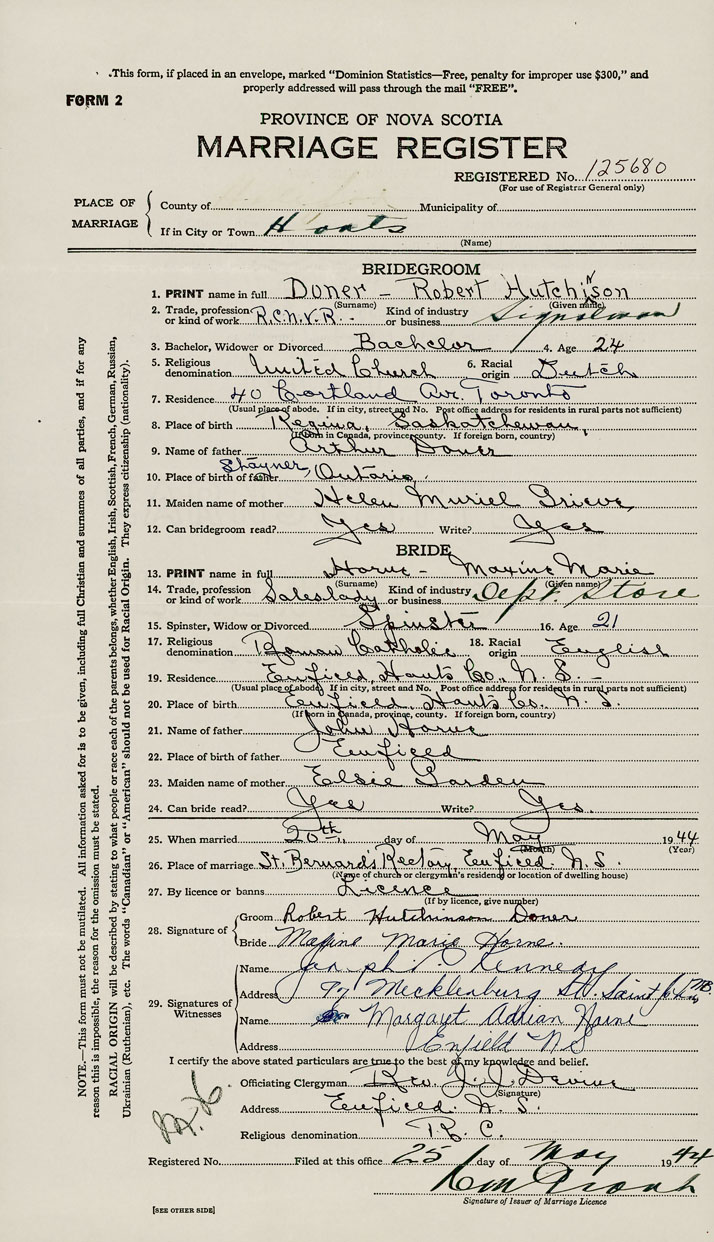 .This form, if placed in an envelope, marked "Dominion Statistics—Free, penalty for improper use $300," and
properly addressed will pass through the mail "FREE".
FORM 2
PROVINCE OF NOVA SCOTIA
MARRIAGE REGISTER
REGISTERED No. 125680
(For use of Registrar General only)
PLACE OF MARRIAGE
County of Municipality of
If in City or Town Hants
(Name)
BRIDEGROOM
1. PRINT name in full Doner - Robert Hutchinson
(Surname) (Given name)
2. Trade, profession or kind of work R.C.N.V.R. Kind of industry or business Signalman
3. Bachelor, Widower or Divorced Bachelor 4. Age 24
5. Religious denomination United Church 6. Racial origin Dutch
7. Residence 40 Cortland Av. Toronto
(Usual place of abode. If in city, street and No. Post office address for residents in rural parts not sufficient)
8. Place of birth Regina, Saskatchewan,
(If born in Canada, province, county. If foreign born, country)
9. Name of father Arthur Doner
10. Place of birth of father Stayner, Ontario,
11. Maiden name of mother Helen Muriel Grieve
12. Can bridegroom read? Yes Write? Yes
BRIDE
13. PRINT name in full Horne - Maxine Marie
(Surname) (Given name)
14. Trade, profession or kind of work Saleslady Kind of industry or business Dept. Store
15. Spinster, Widow or Divorced Spinster 16. Age 21
17. Religious denomination Roman Catholic 18. Racial origin English
19. Residence Enfield, Hants Co., N. S. -
(Usual place of abode. If in city, street and No. Post office address for residents in rural parts not sufficient)
20. Place of birth Enfield, Hants Co., N. S.
(If born in Canada, province, county. If foreign born, country)
21. Name of father John Horne
22. Place of birth of father Enfield
23. Maiden name of mother Elsie
24. Can bride read? Yes Write? Yes
25. When married 20th day of May 1944
(Month) (Year)
26. Place of marriage St. Bernard's Rectory, Enfield. N. S.
(Name of church or clergyman's residence or location of dwelling house)
27. By licence or banns Licence
(If by licence, give number)
28. Signature of
Groom Robert Hutchinson Doner
Bride Maxine Marie Horne.
29. Signatures of Witnesses
Name Kennedy
Address 97 Mecklenburg St. Saint John NB.
Name Margaret Adrian Horne
Address Enfield N S
I certify the above stated particulars are true to the best of my knowledge and belief.
Officiating Clergyman Rev. J. J. Devine
(Signature)
Address Enfield. N. S.
Religious denomination R. C.
Registered No. Filed at this office 25 day of May 1944
Signature of Issuer of Marriage Licence
[SEE OTHER SIDE]
NOTE.—This form must not be mutilated. All information asked for is to be given, including full Christian and surnames of all parties, and if for any
reason this is impossible, the reason for the omission must be stated.
RACIAL ORIGIN will be described by stating to what people or race each of the parents belongs, whether English, Irish, Scottish, French, German, Russian,
Ukrainian (Ruthenian), etc. The words "Canadian" or "American" should not be used for Racial Origin. They express citizenship (nationality).